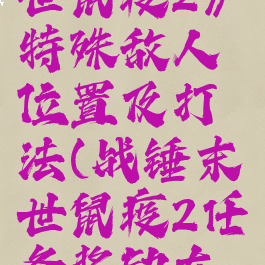 世鼠疫2》
特殊敌人
位置及打
法(战锤末
世鼠疫2任
务奖励在